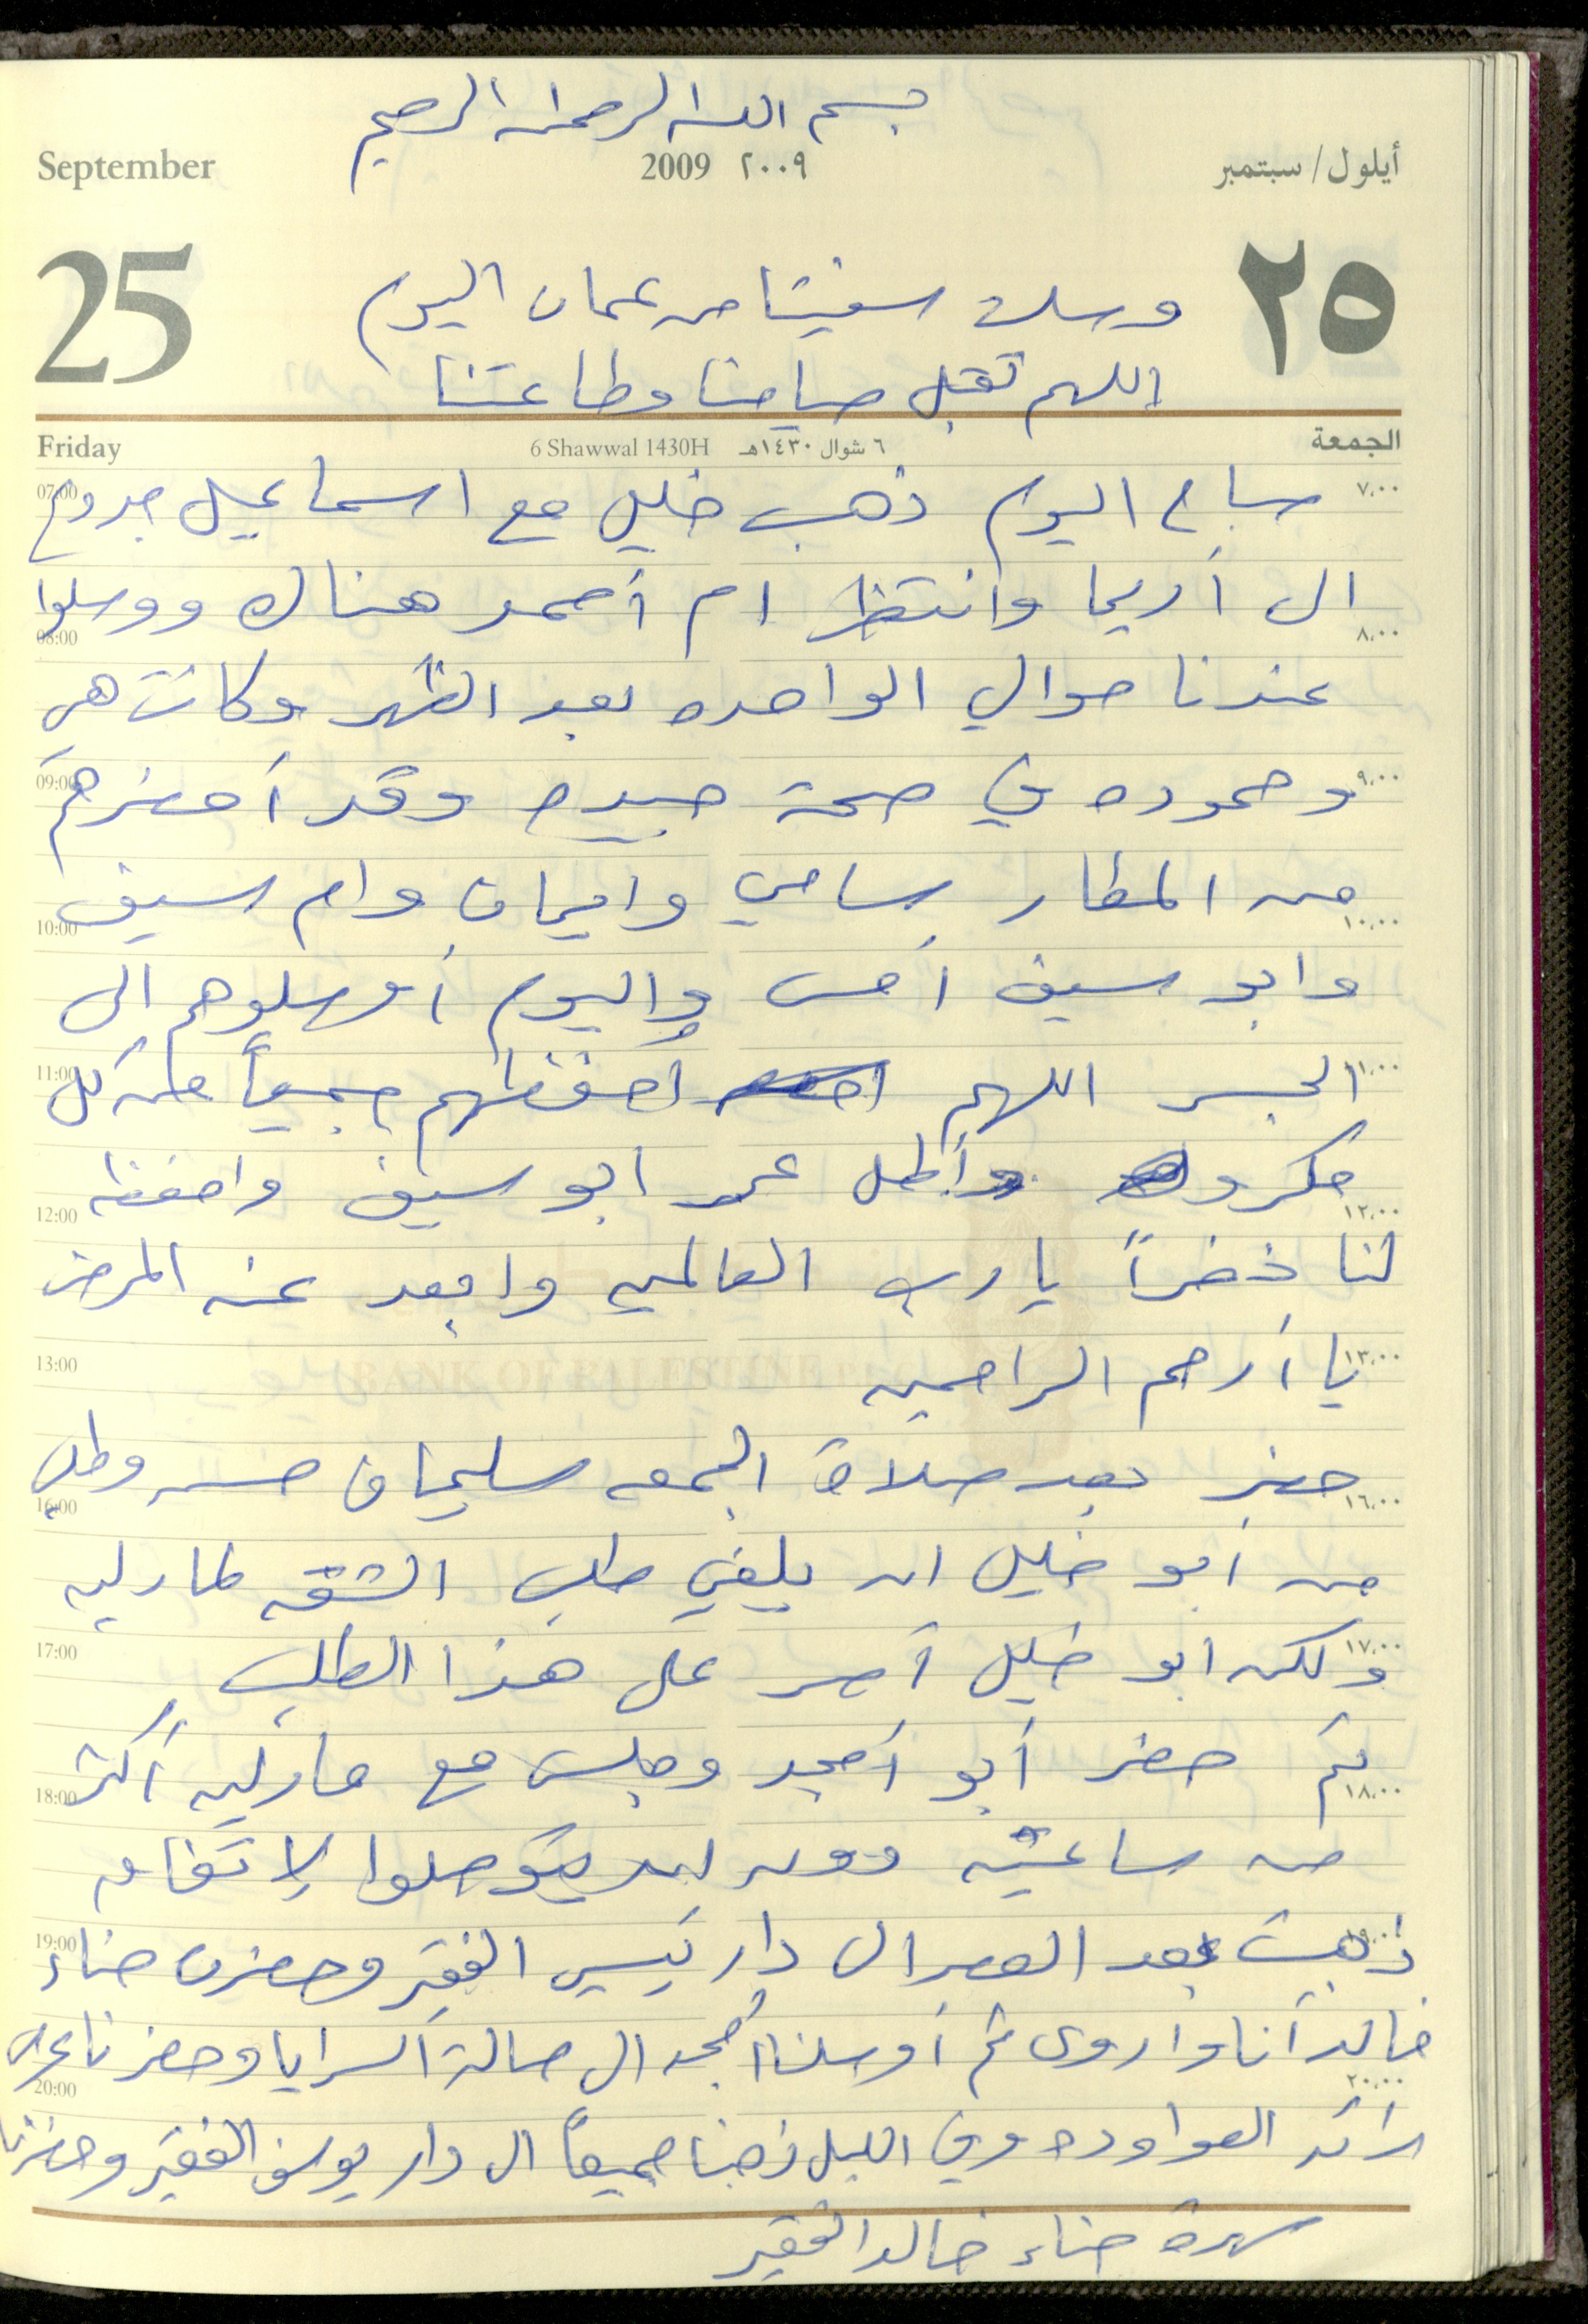 بسم الله الرحمن الرحيم
September 2009 ٢٠٠٩ أيلول/سبتمبر
25 ٢٥
وصلت سفيتا من عمان اليوم
اللهم تقبل صيامنا وطاعتنا
Friday 6 Shawwal 1430H ٦ شوال ١٤٣٠هـ الجمعة
07:00 صباح اليوم ذهب خليل مع اسماعيل جدوع ٧,٠٠
الى أريحا وانتظر ام أحمد هناك ووصلوا
08:00 ٨,٠٠
عندنا حوالي الواحده بعد الظهر وكانت هي
09:00 وحموده في صحة جيده وقد أحضرهم ٩,٠٠
من المطار سامي وايمان وام سيف
10:00 ١٠,٠٠
وابو سيف أمس واليوم أوصلوهم الى
11:00 الجسر اللهم احفظهم جميعاً من كل ١١,٠٠
مكروه وأطل عمر ابو سيف واحفظه
12:00 ١٢,٠٠
لنا ذخراً يا رب العالمين وابعد عنه المرض
13:00 يا أرحم الراحمين ١٣,٠٠
BANK OF PALESTINE
حضر بعد صلاة الجمعه سليمان حسن وطلب
16:00 ١٦,٠٠
من أبو خليل ان يلغي طلب الشقه لمارلين
17:00 ولكن ابو خليل أصر على هذا الطلب ١٧,٠٠
ثم حضر أبو أمجد وجلس مع مارلين أكثر
18:00 ١٨,٠٠
من ساعتين دون ان يتوصلوا لاتفاق
19:00 ذهبت بعد العصر الى دار الفقير وحضرت حناء ١٩,٠٠
خالد أنا واروى ثم أوصلنا أمجد الى صالة السرايا وحضرنا عرس
20:00 ٢٠,٠٠
رائد العواوده وفي الليل ذهبنا جميعاً الى دار يوسف الفقير وحضرنا
سهرة حناء خالد الفقير